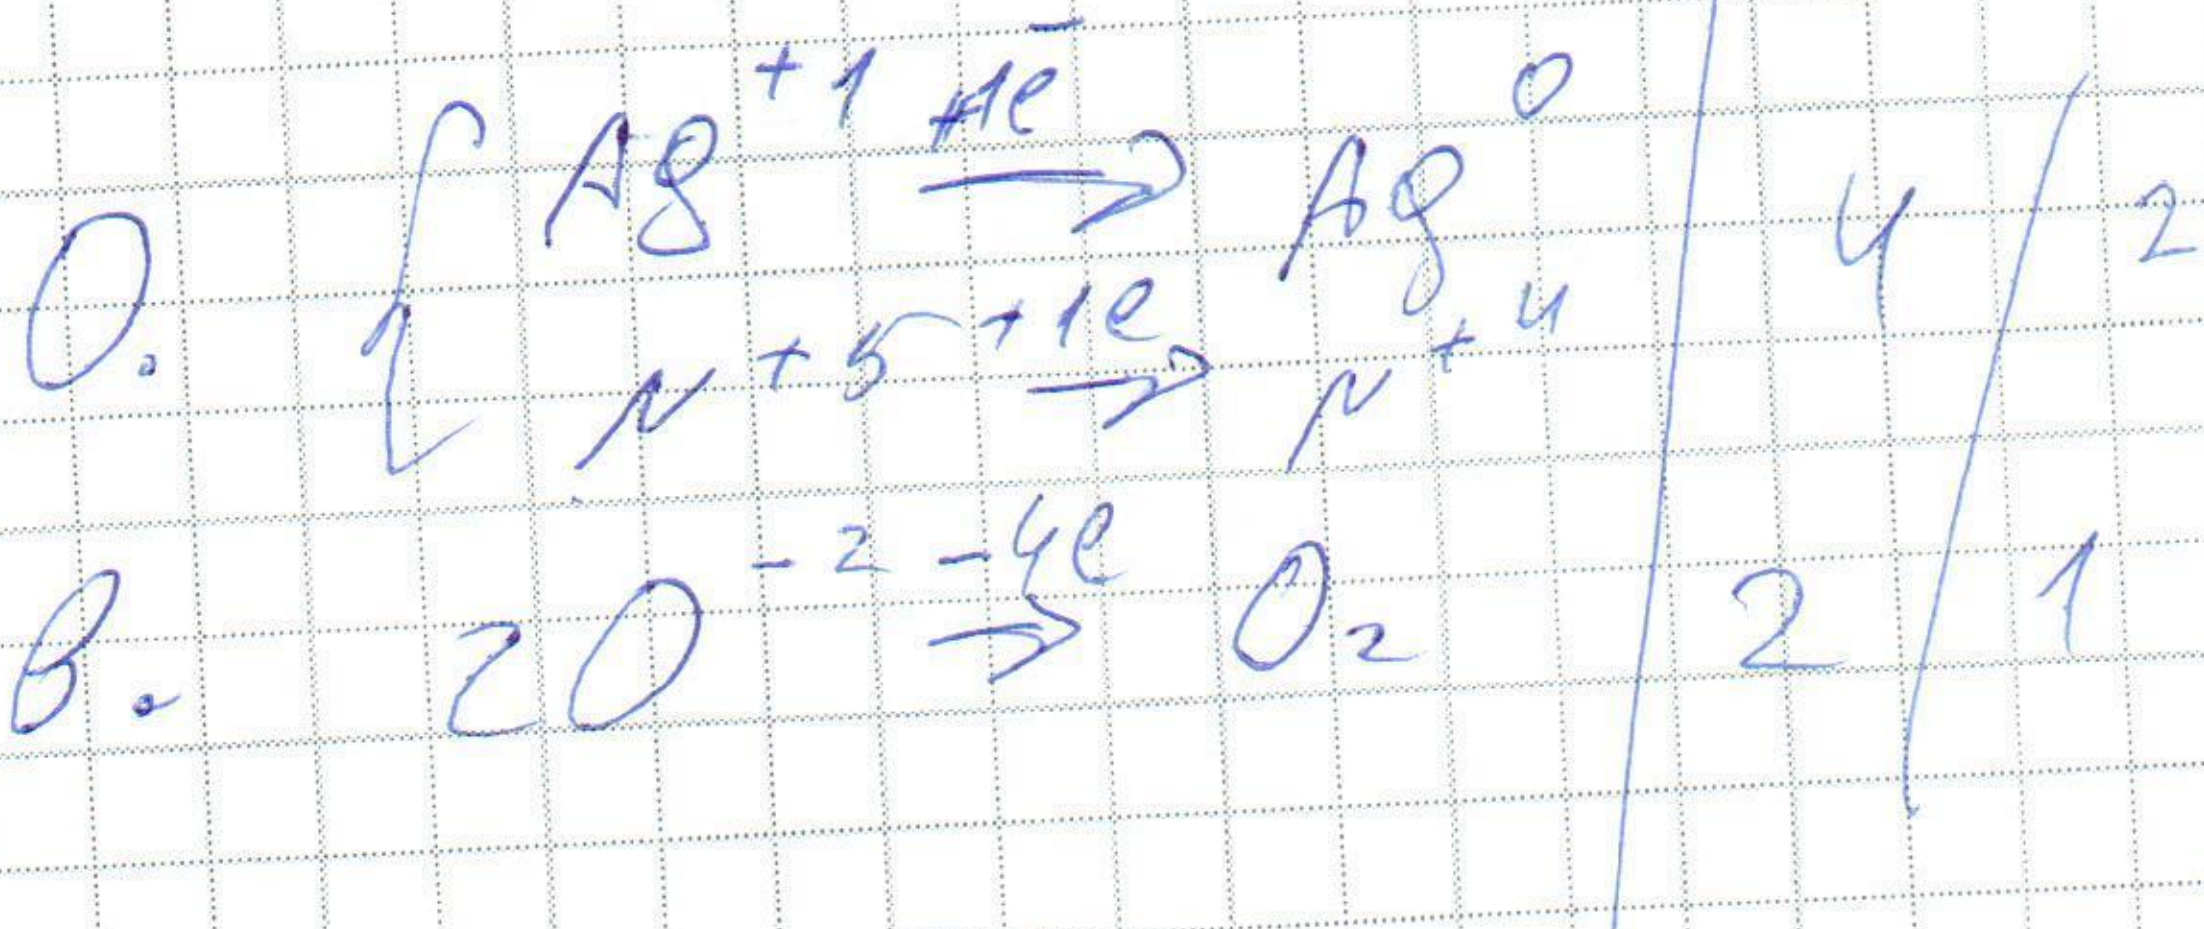 O. { Ag⁺¹ +1e⁻ → Ag⁰ | 4 / 2
N⁺⁵ +1e → N⁺⁴
В. 2O⁻² -4e → O₂ | 2 / 1